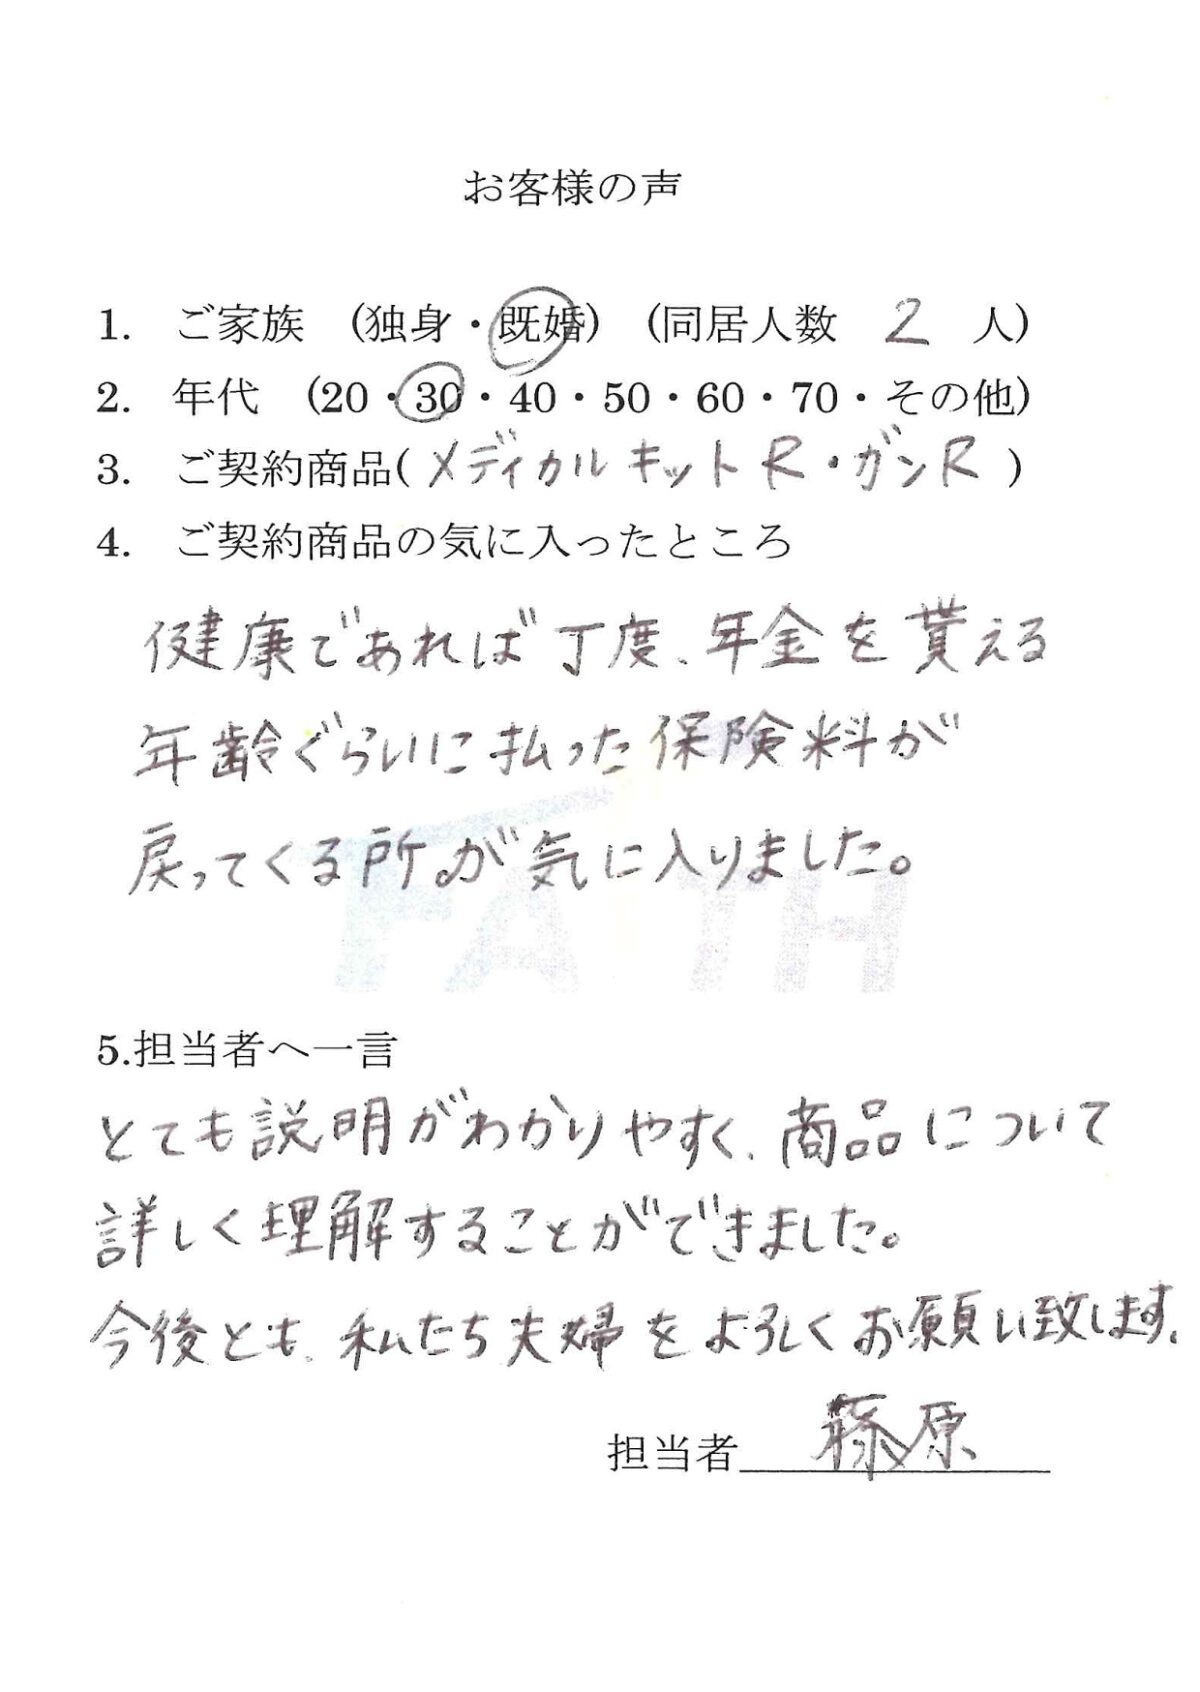 お客様の声
1. ご家族 (独身・既婚) (同居人数 2 人)
2. 年代 (20・30・40・50・60・70・その他)
3. ご契約商品(メディカルキットR・ガンR)
4. ご契約商品の気に入ったところ
健康であれば丁度、年金を貰える
年齢ぐらいに払った保険料が
戻ってくる所が気に入りました。
FAITH
5.担当者へ一言
とても説明がわかりやすく、商品について
詳しく理解することができました。
今後とも、私たち夫婦をよろしくお願い致します。
担当者 藤原